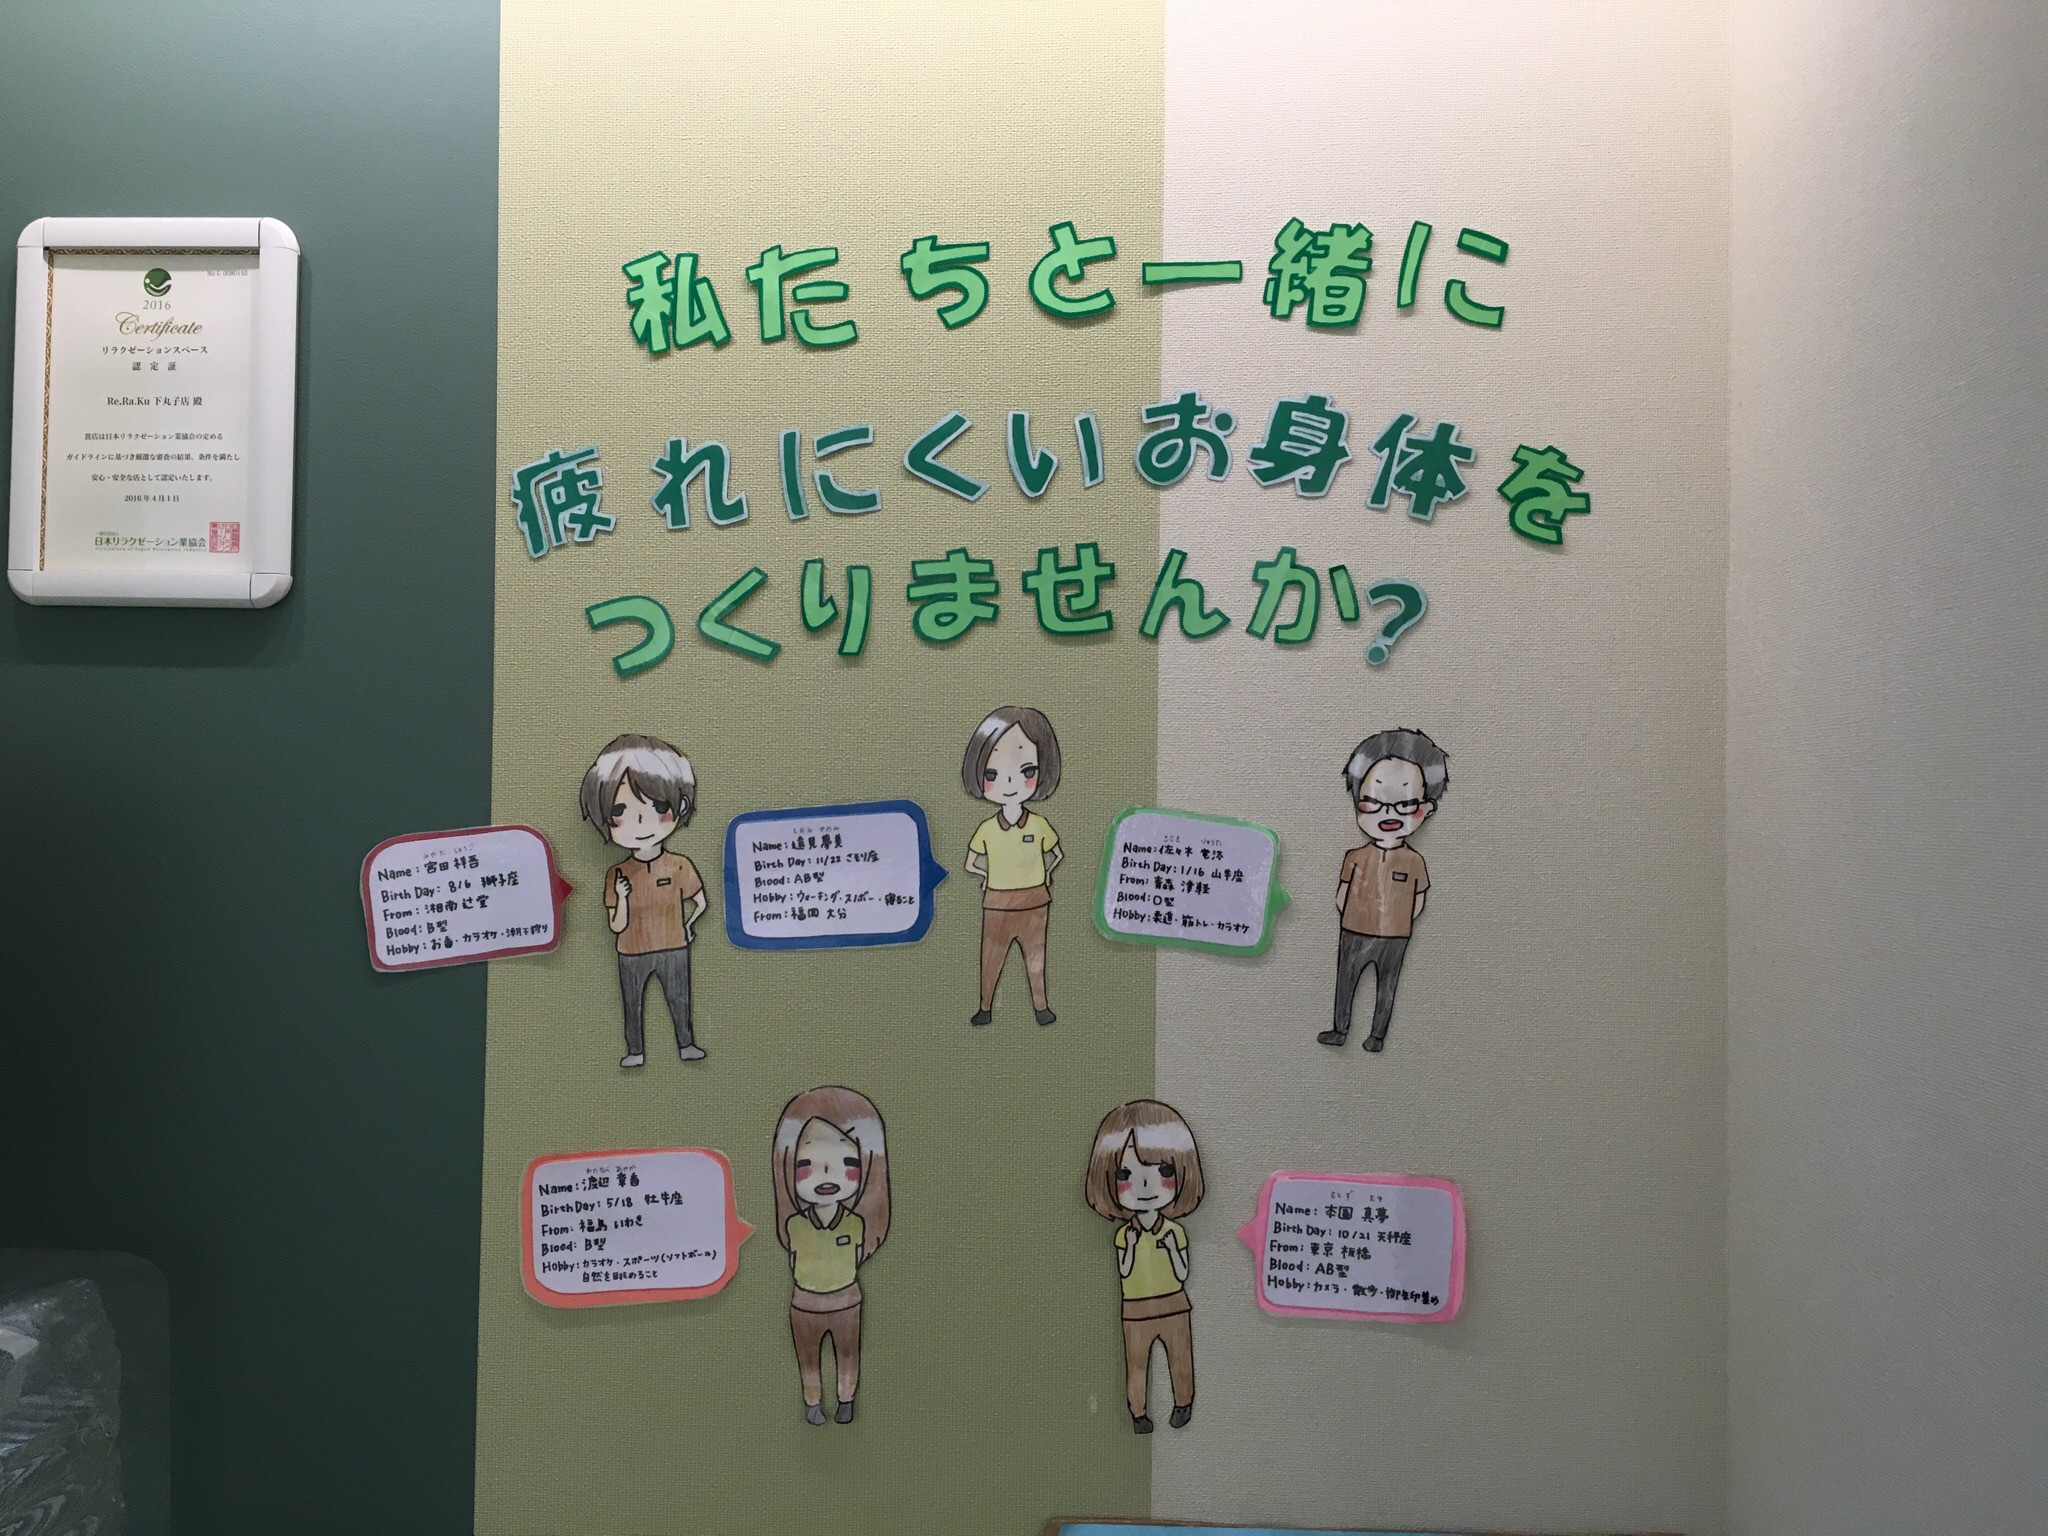 私たちと一緒に
疲れにくいお身体を
つくりませんか?
2016
Certificate
リラクゼーションスペース
認定証
Re.Ra.Ku 下丸子店 殿
貴店は日本リラクゼーション業協会の定める
ガイドラインに基づき厳選な審査の結果、条件を満たし
安心・安全な店として認定いたします。
2016年4月1日
日本リラクゼーション業協会
Name:宮田 祥吾
Birth Day: 8/6 獅子座
From:湘南 辻堂
Blood:B型
Hobby:お香・カラオケ・潮干狩り
Name:遠見 夢美
Birth Day:11/22 さそり座
Blood:AB型
Hobby:ウォーキング・スノボー・寝ること
From:福岡 大分
Name:佐々木
Birth Day:1/16 山羊座
From:青森 津軽
Blood:O型
Hobby:柔道・筋トレ・カラオケ
わたなべ あやか
Name:渡辺 章香
Birth Day:5/18 牡牛座
From:福島 いわき
Blood:B型
Hobby:カラオケ・スポーツ(ソフトボール)
自然を眺めること
Name:本園 真夢
Birth Day:10/21 天秤座
From:東京 板橋
Blood:AB型
Hobby:カメラ・散歩・御朱印集め